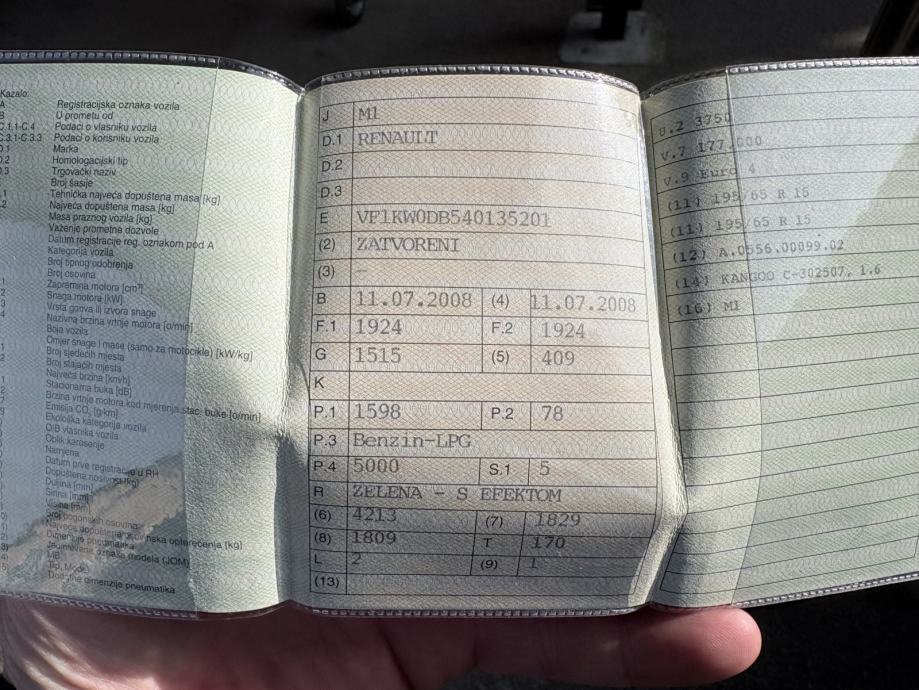 Kazalo:
A Registracijska oznaka vozila
B U prometu od
C.1.1-C.4 Podaci o vlasniku vozila
C.3.1-C.3.3 Podaci o korisniku vozila
D.1 Marka
D.2 Homologacijski tip
D.3 Trgovački naziv
Broj šasije
Tehnička najveća dopuštena masa [kg]
Najveća dopuštena masa [kg]
Masa praznog vozila [kg]
Važenje prometne dozvole
Datum registracije reg. oznakom pod A
Kategorija vozila
Broj tipnog odobrenja
Broj osovina
Zapremina motora [cm³]
Snaga motora [kW]
Vrsta goriva ili izvora snage
Nazivna brzina vrtnje motora [o/min]
Boja vozila
Omjer snage i mase (samo za motocikle) [kW/kg]
Broj sjedećih mjesta
Broj stajaćih mjesta
Najveća brzina [km/h]
Stacionarna buka [dB]
Brzina vrtnje motora kod mjerenja stac. buke [o/min]
Emisija CO₂ [g/km]
Ekološka kategorija vozila
OIB vlasnika vozila
Oblik karoserije
Namjena
Datum prve registracije u RH
Dopuštena nosivost [kg]
Duljina [mm]
Širina [mm]
Visina [mm]
Broj pogonskih osovina
Dimenzije pneumatika
Dodatne dimenzije pneumatika
J M1
D.1 RENAULT
D.2
D.3
E VF1KW0DB540135201
(2) ZATVORENI
(3) –
B 11.07.2008 (4) 11.07.2008
F.1 1924 F.2 1924
G 1515 (5) 409
K
P.1 1598 P.2 78
P.3 Benzin-LPG
P.4 5000 S.1 5
R ZELENA – S EFEKTOM
(6) 4213 (7) 1829
(8) 1809 T 170
L 2 (9) 1
(13)
U.2 3750
V.7 177.000
V.9 Euro 4
(11) 195/65 R 15
(11) 195/65 R 15
(12) A.0556.00099.02
(14) KANGOO C-302507, 1.6
(16) M1